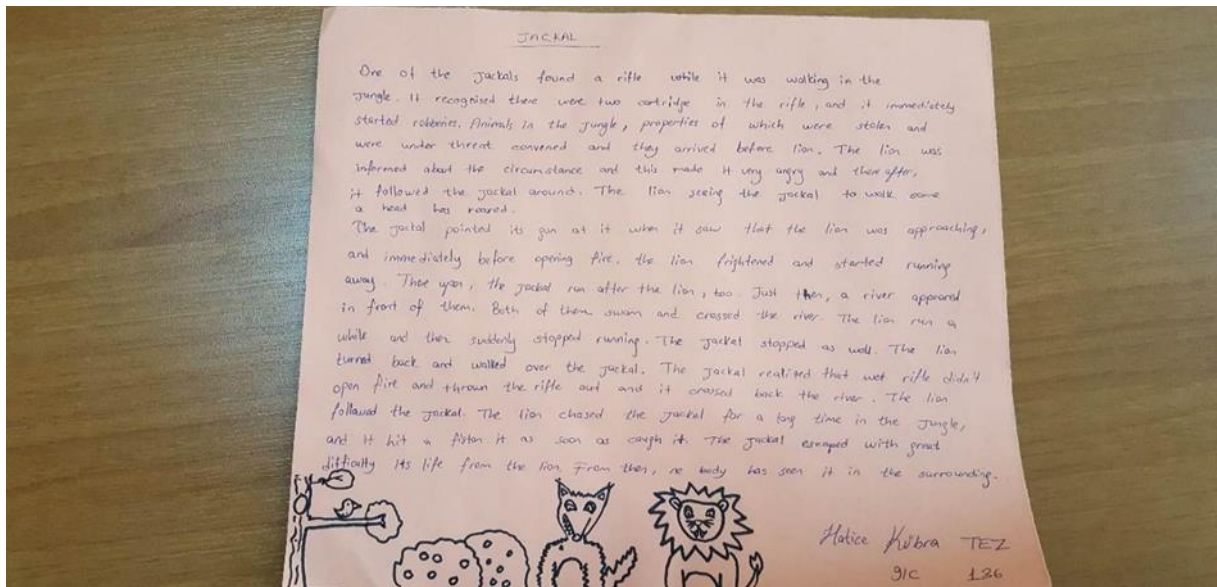 JACKAL
One of the jackals found a rifle while it was walking in the
jungle. It recognised there were two cartridge in the rifle, and it immediately
started robberies. Animals in the jungle, properties of which were stolen and
were under threat convened and they arrived before lion. The lion was
informed about the circumstance and this made it very angry and there after,
it followed the jackal around. The lion seeing the jackal to walk some
a head has roared.
The jackal pointed its gun at it when it saw that the lion was approaching,
and immediately before opening fire, the lion frightened and started running
away. There upon, the jackal run after the lion, too. Just then, a river appeared
in front of them. Both of them swam and crossed the river. The lion run a
while and then suddenly stopped running. The jackal stopped as well. The lion
turned back and walked over the jackal. The jackal realized that wet rifle didn't
open fire and thrown the rifle out and it crossed back the river. The lion
followed the jackal. The lion chased the jackal for a long time in the jungle,
and it hit a fist on it as soon as caugh it. The jackal escaped with great
diffically its life from the lion. From then, no body has seen it in the surrounding.
Hatice Kübra TEZ
9/C 136